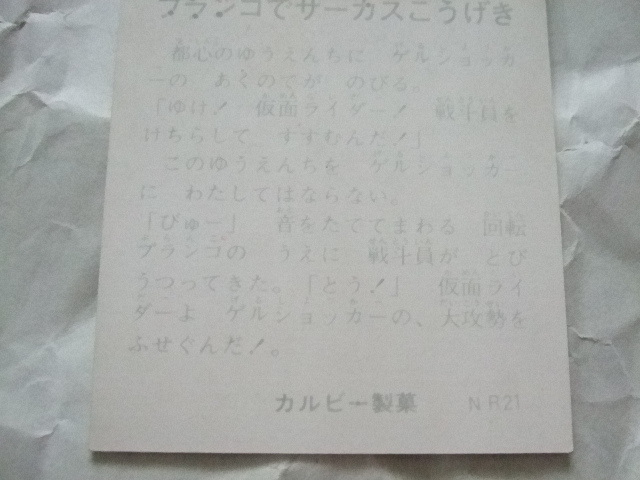 ブランコでサーカスこうげき
都心のゆうえんちに ゲルショッカ
ーの あくのてが のびる。
「ゆけ! 仮面ライダー! 戦斗員を
けちらして すすむんだ!」
このゆうえんちを ゲルショッカー
に わたしてはならない。
「びゅー」 音をたててまわる 回転
ブランコの うえに 戦斗員が とび
うつってきた。「とう!」 仮面ライ
ダーよ ゲルショッカーの、大攻勢を
ふせぐんだ!。
カルビー製菓 N R21